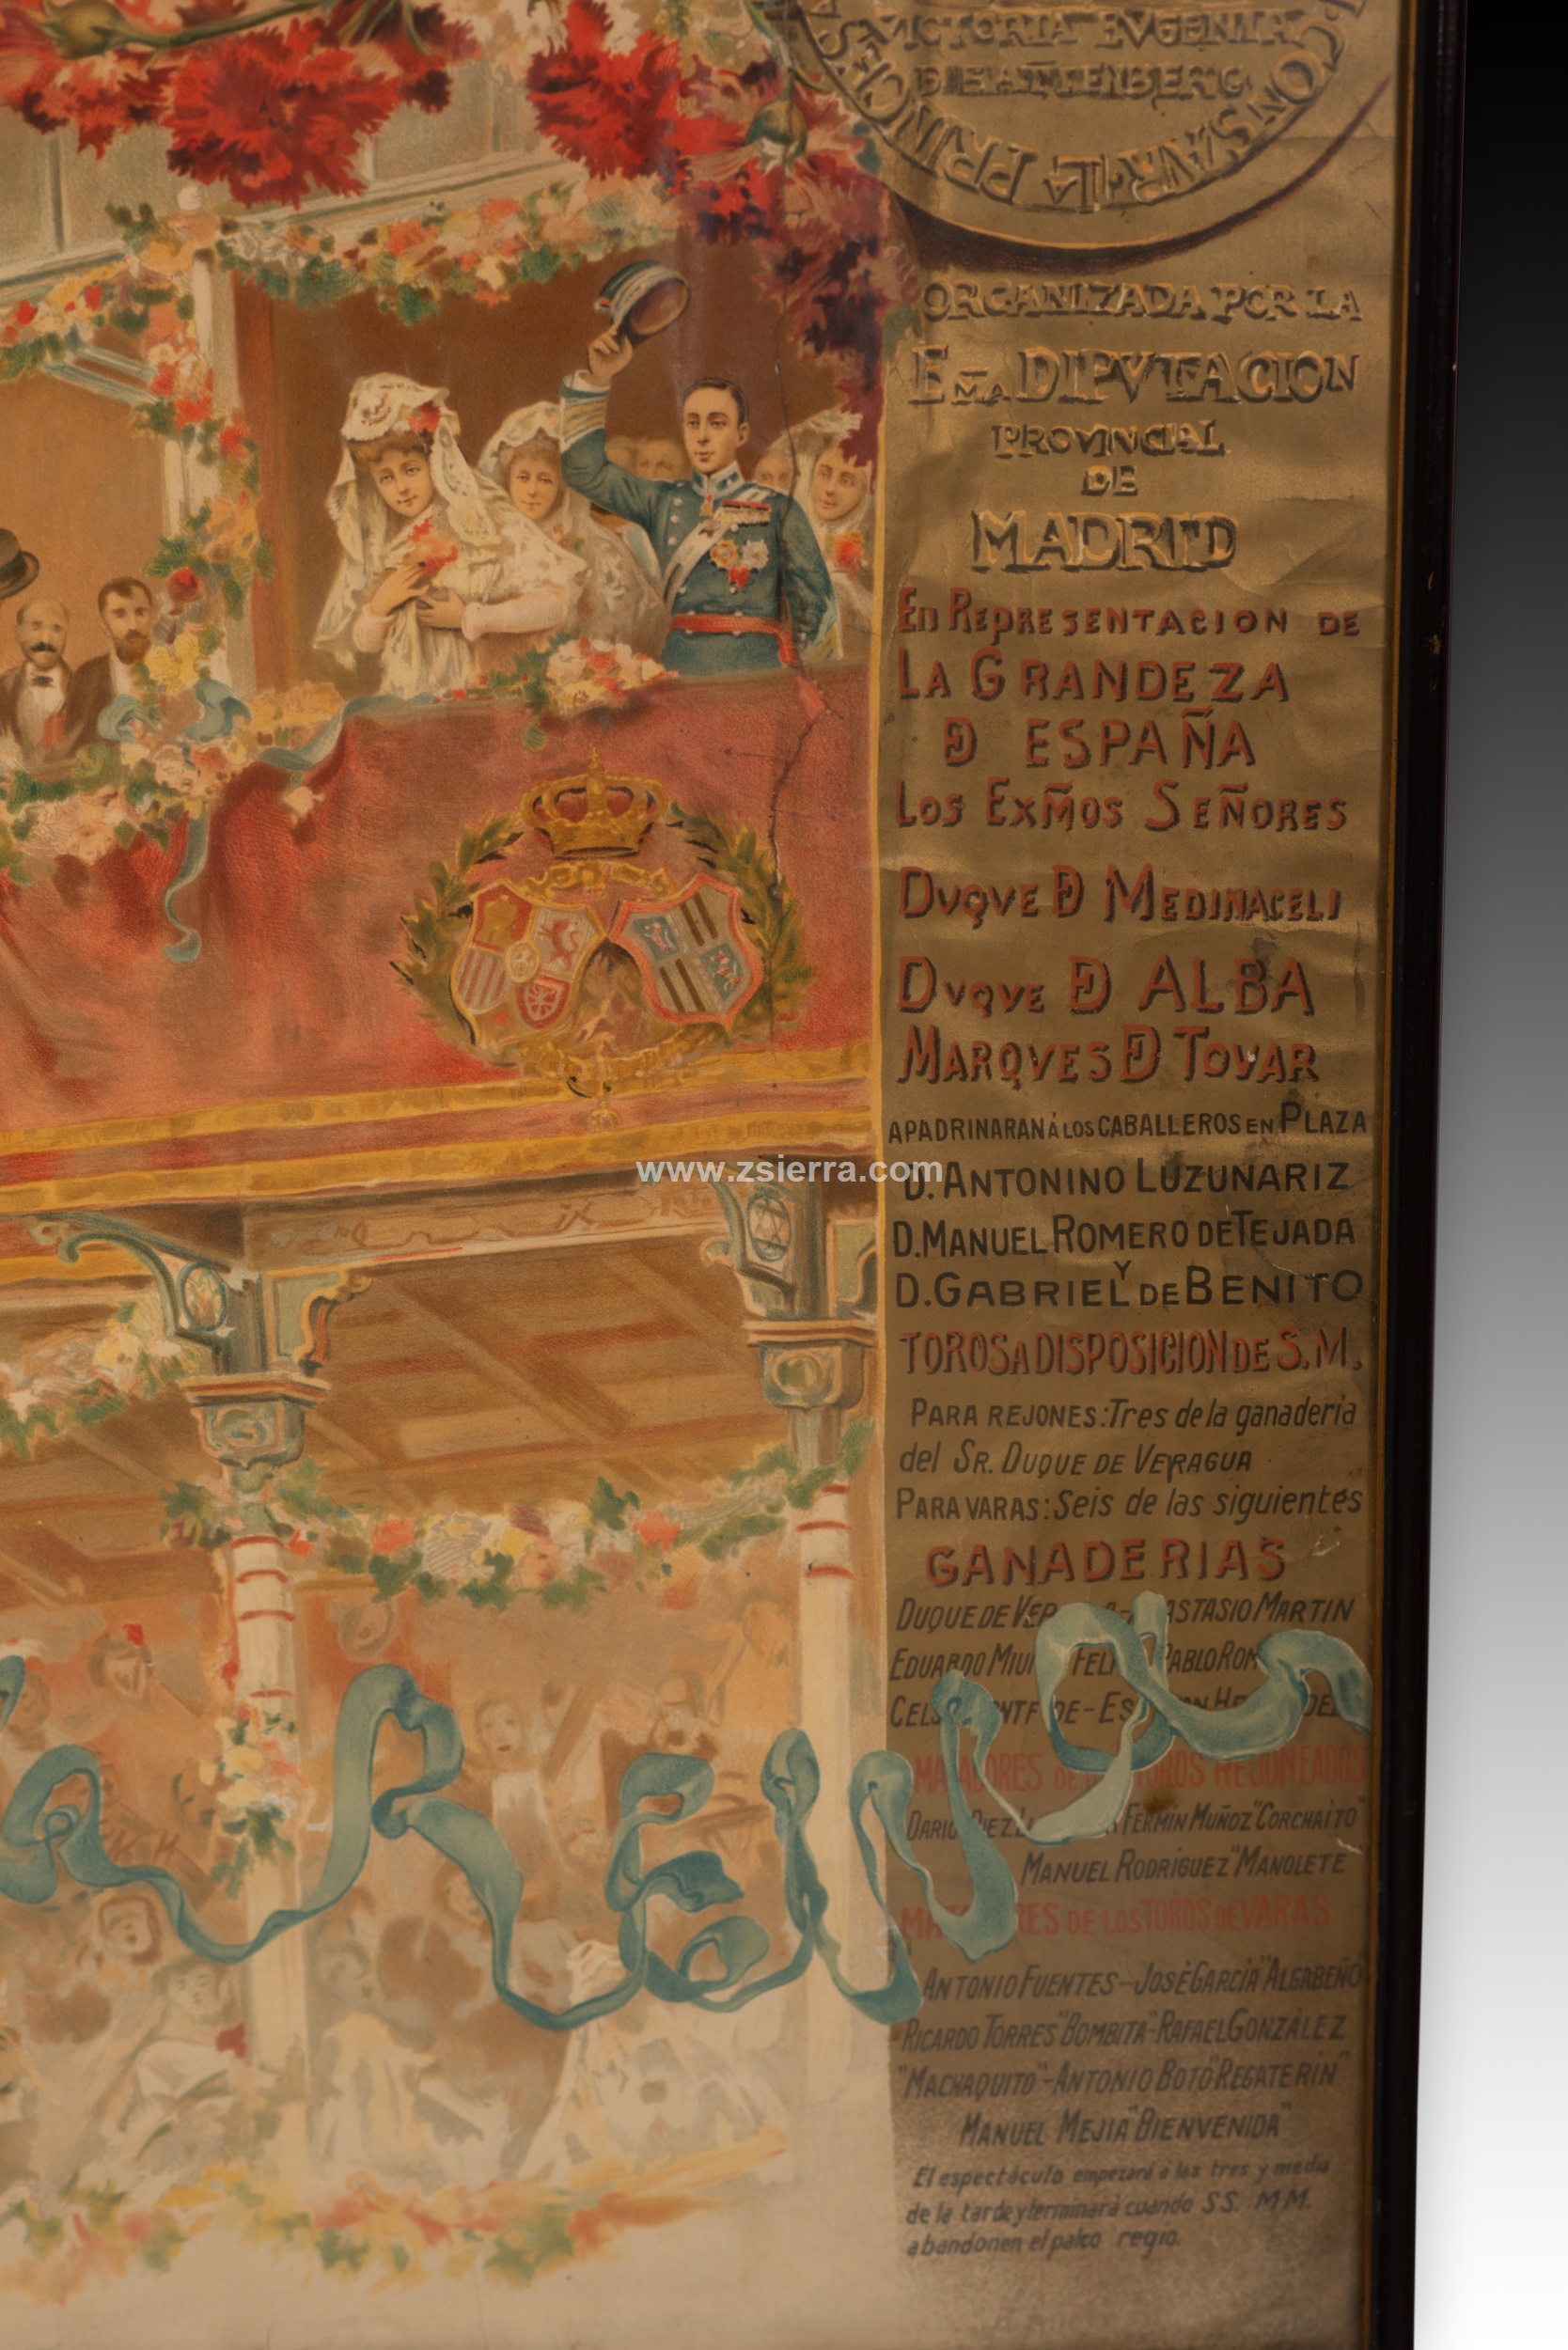 VICTORIA EUGENIA
D BATTENBERG
CON SAR LA PRINCES
ORGANIZADA POR LA
EMA DIPVTACION
PROVINCIAL
DE
MADRID
En REPRESENTACION DE
LA GRANDEZA
D ESPAÑA
LOS EXM̃OS SEÑORES
DUQVE D MEDINACELI
DVQVE D ALBA
MARQVES D TOVAR
APADRINARAN Á LOS CABALLEROS EN PLAZA
www.zsierra.com
D. ANTONINO LUZUNARIZ
D. MANUEL ROMERO DE TEJADA
Y
D. GABRIEL DE BENITO
TOROS A DISPOSICION DE S. M.
PARA REJONES: Tres de la ganaderia
del SR. DUQUE DE VERAGUA
PARA VARAS: Seis de las siguientes
GANADERIAS
DUQUE DE VER A - ASTASIO MARTIN
EDUARDO MIU FEL PABLO ROM
MATADORES DE TOROS REJONEADOS
DARIO DIEZ FERMIN MUÑOZ "CORCHAITO"
MANUEL RODRIGUEZ "MANOLETE"
MA RES DE LOS TOROS DE VARAS
ANTONIO FUENTES - JOSÉ GARCIA "ALGABEÑO"
RICARDO TORRES "BOMBITA" - RAFAEL GONZALEZ
"MACHAQUITO" - ANTONIO BOTO "REGATERIN"
MANUEL MEJIA "BIENVENIDA"
El espectáculo empezará á las tres y media
de la tarde y terminará cuando SS. MM.
abandonen el palco regio.
a REINA